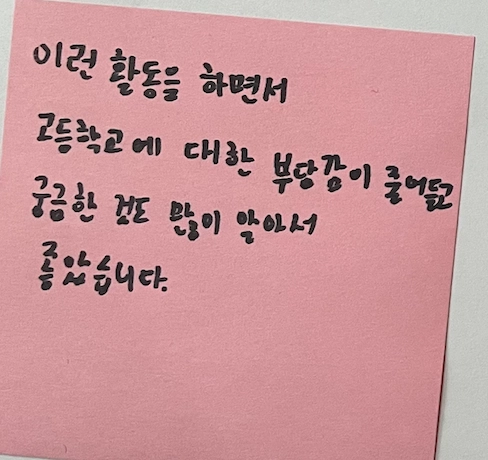 이런 활동을 하면서
고등학교에 대한 부당감이 줄어들고
궁금한 것도 많이 알아서
좋았습니다.